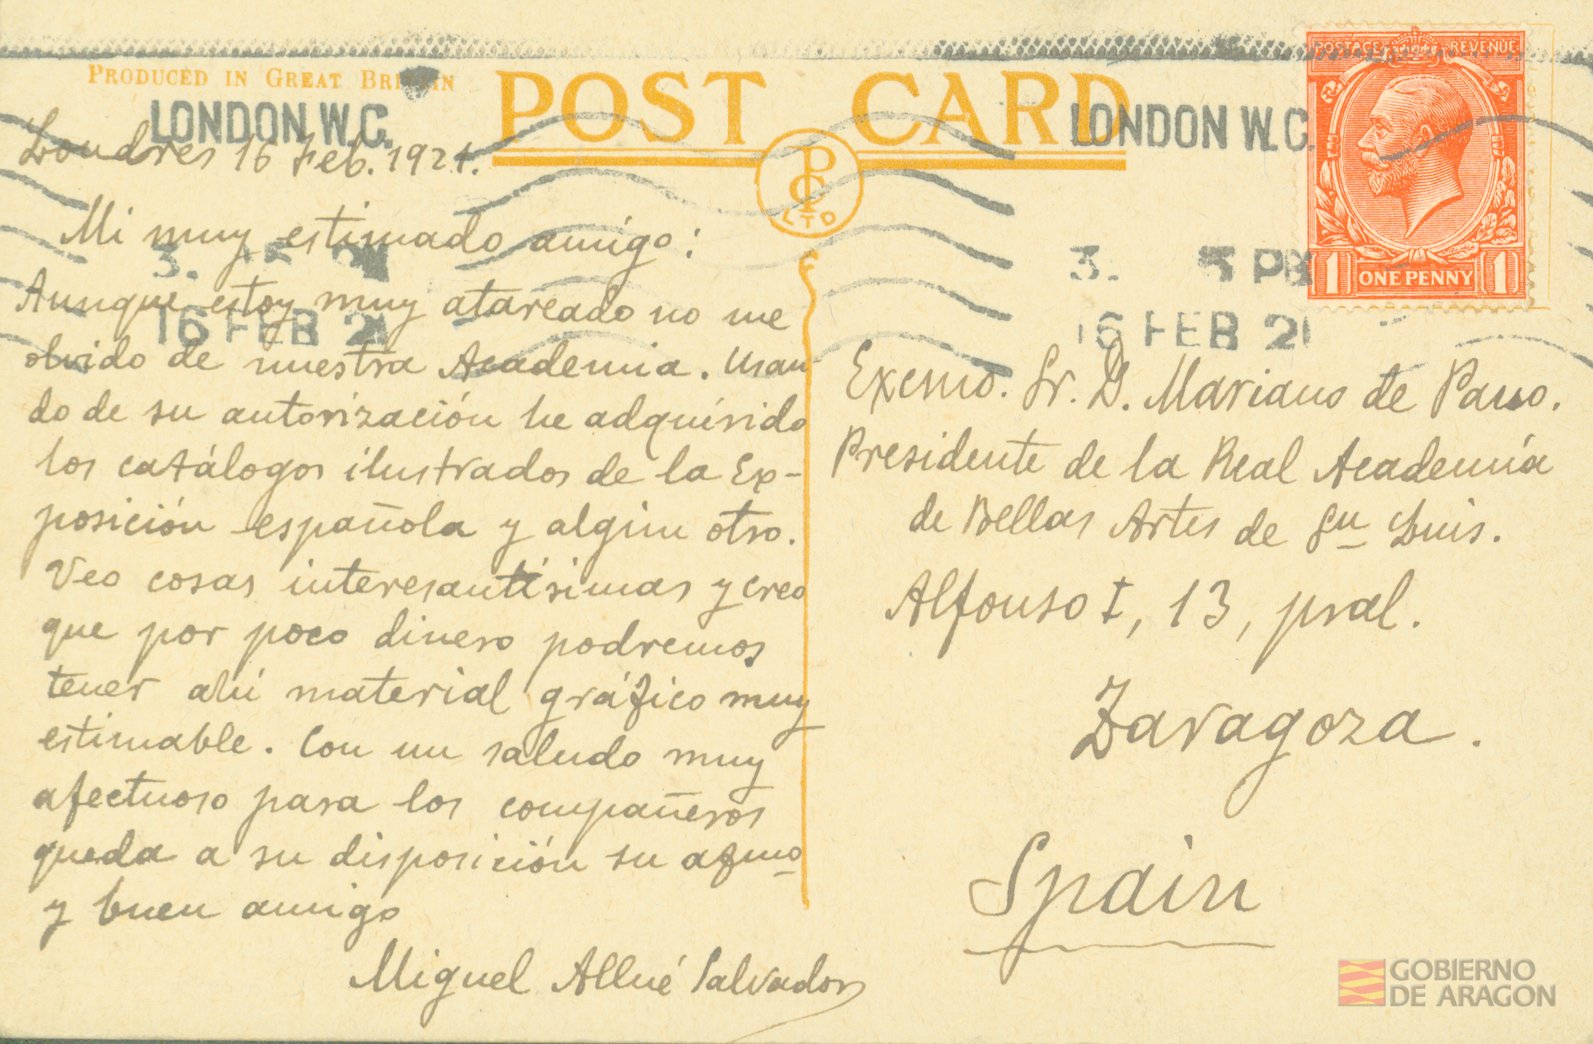 PRODUCED IN GREAT BRITAIN
POST CARD
LONDON W.C.
LONDON W.C.
3. 15 PM
16 FEB 21
3. 15 PM
16 FEB 21
P C LTD
POSTAGE REVENUE
1 ONE PENNY 1
Londres 16 Feb. 1921.
Mi muy estimado amigo:
Aunque estoy muy atareado no me
olvido de nuestra Academia. Usan-
do de su autorización he adquirido
los catálogos ilustrados de la Ex-
posición española y algún otro.
Veo cosas interesantísimas y creo
que por poco dinero podremos
tener ahí material gráfico muy
estimable. Con un saludo muy
afectuoso para los compañeros
queda a su disposición su afmo
y buen amigo
Miguel Allué Salvador
Excmo. Sr. D. Mariano de Pano.
Presidente de la Real Academia
de Bellas Artes de Sn Luis.
Alfonso I, 13, pral.
Zaragoza.
Spain
GOBIERNO
DE ARAGON